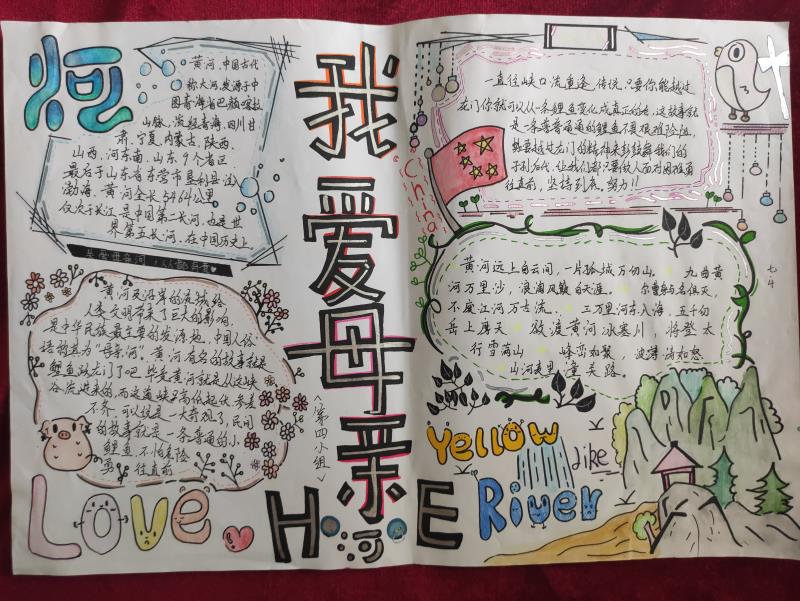 河
黄河，中国古代
称大河，发源于中
国青海省巴颜喀拉
山脉，流经青海、四川、甘
肃、宁夏、内蒙古、陕西、
山西、河东南、山东、9个省区
最后于山东省东营市垦利县注入
渤海，黄河全长5464公里
仅次于长江，是中国第二长河，也是世
界第五长河，在中国历史上
黄河及沿岸的流域给
人类文明带来了巨大的影响，
是中华民族最主要的发源地，中国人俗
语称其为“母亲河”黄河有名的故事就是
鲤鱼跃龙门了吧，毕竟黄河就是从这峡
谷流进来的，而这道峡
不齐，可以说是一大奇观了，民间
的故事就是一条普通的小
鲤鱼不怕危险
勇往直前
我爱母亲河
（第四小组）
China
一直径峡口流
传说，只要你能越过
龙门，你就可以从一条鲤鱼变化成真正的龙，这故事就
是一条普普通通的鲤鱼不畏艰难险阻，
龙门的精神来鼓舞我们的
子孙后代，让我们都只要做人面对困难勇
往直前，坚持到底，努力！！
黄河远上白云间，一片孤城万仞山。 九曲黄
河万里沙，浪淘风簸自天涯。 尔曹身与名俱灭，
不废江河万古流。 三万里河东入海，五千仞
岳上摩天 欲渡黄河冰塞川 将登太
行雪满山 峰峦如聚，波涛如怒
山河表里潼关路。
七4
Yellow
like
River
LOVE
HOPE